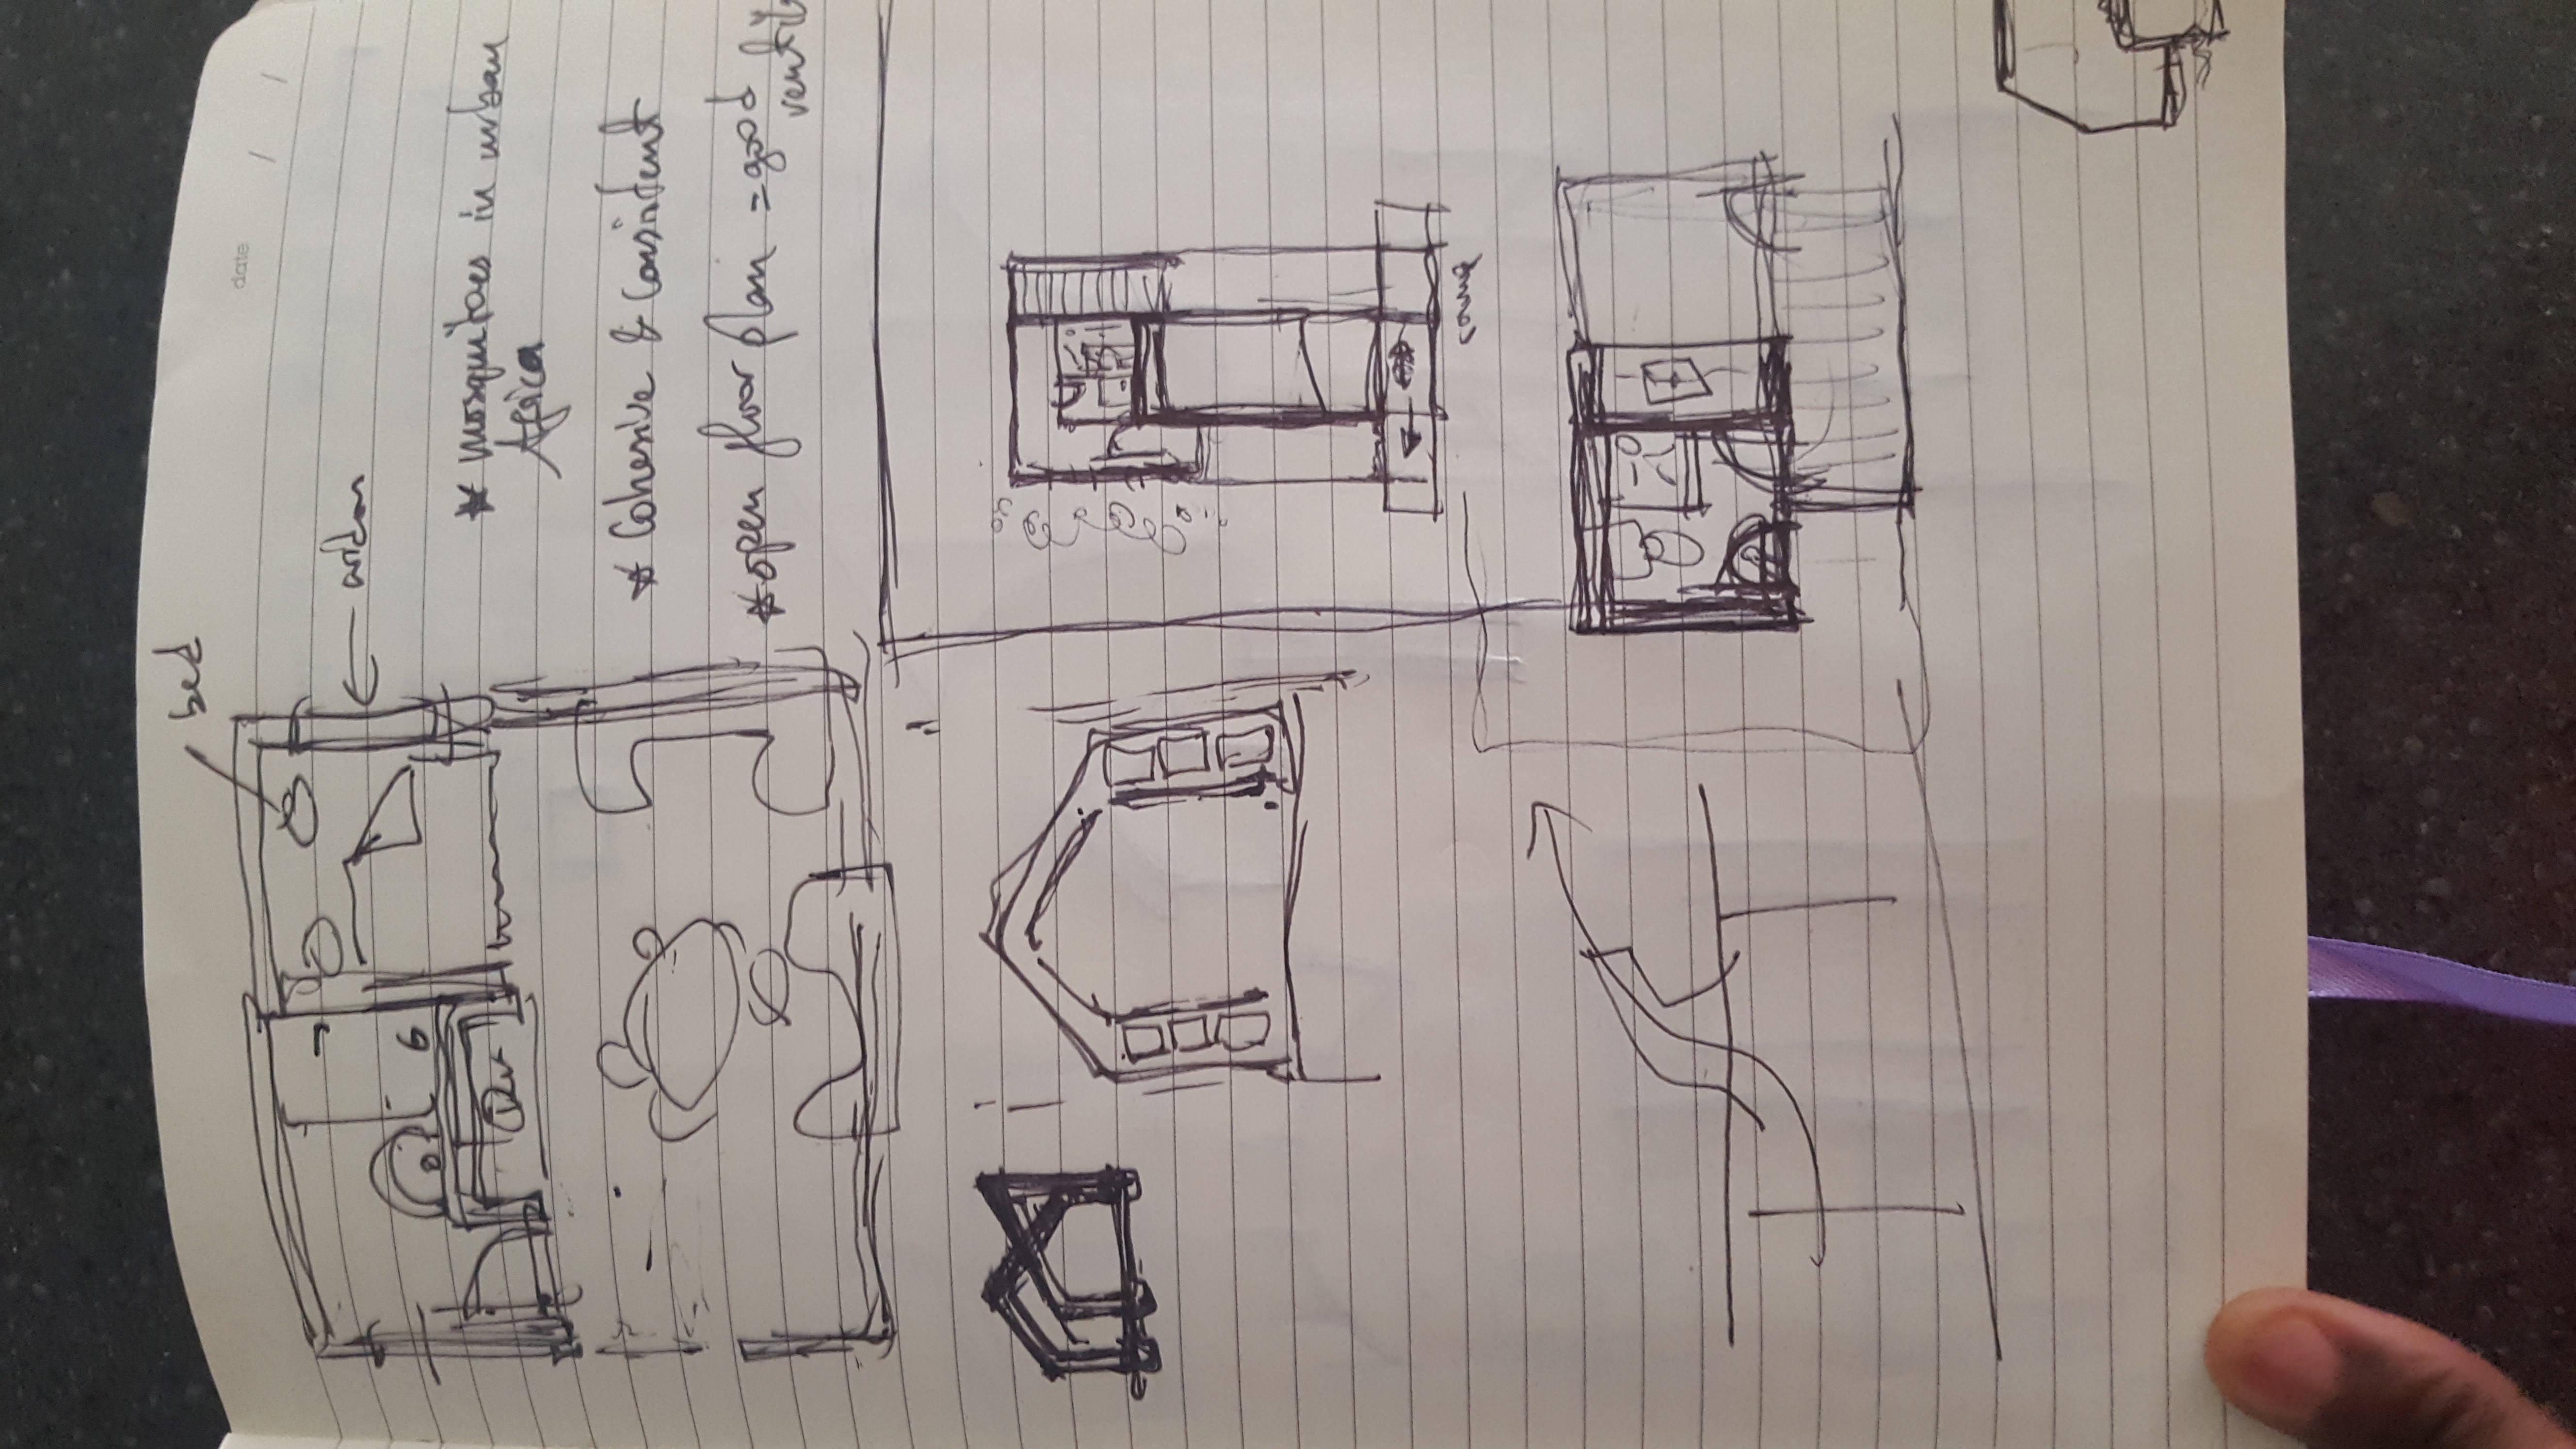 bed
date / /
* mosquitoes in urban
Africa
* Cohesive & Consistent
* open floor plan = good
ventil
ramp